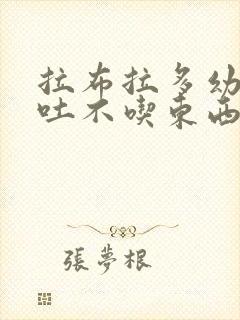 拉布拉多幼
吐不喫東西
張夢根